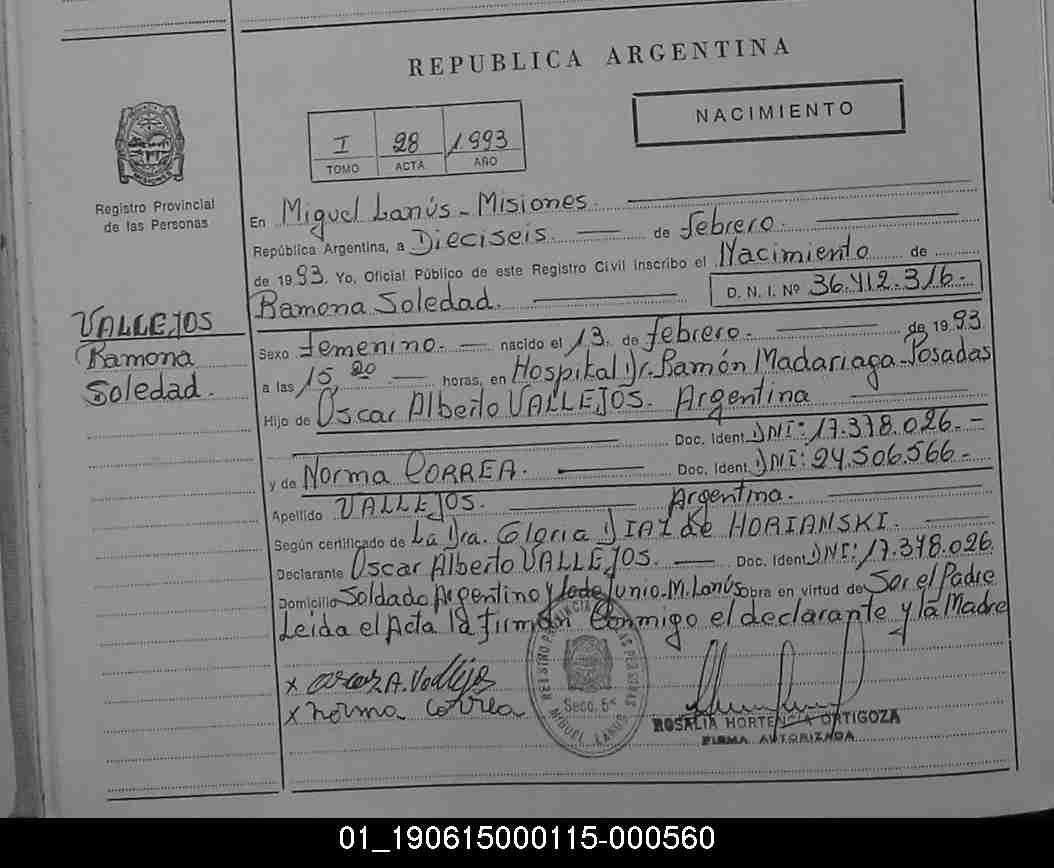 REPUBLICA ARGENTINA
NACIMIENTO
I 28 1993
TOMO ACTA AÑO
Registro Provincial
de las Personas
En Miguel Lanús - Misiones.
República Argentina, a Dieciseis. de febrero.
de 1993. Yo, Oficial Público de este Registro Civil inscribo el Nacimiento de
Ramona Soledad. D. N. I. Nº 36.412.316.-
VALLEJOS
Ramona
Soledad.
Sexo femenino. nacido el 13. de febrero. de 1993.
a las 15,20 horas, en Hospital Dr. Ramón Madariaga - Posadas
Hijo de Oscar Alberto VALLEJOS. Argentina
Doc. Ident. DNI: 17.378.026.-
y de Norma CORREA. Doc. Ident. DNI: 24.506.566.-
Argentina.
Apellido VALLEJOS.
Según certificado de La Dra. Gloria DIAZ de HORIANSKI.
Declarante Oscar Alberto VALLEJOS. Doc. Ident. DNI: 17.378.026.
Domicilio Soldado Argentino y 1º de Junio. M. Lanús Obra en virtud de Ser el Padre
Leida el Acta la firman Conmigo el declarante y la Madre
x Oscar A. Vallejos
x norma correa
REGISTRO PROVINCIAL DE LAS PERSONAS
Secc. 5ª
MIGUEL LANUS
ROSALIA HORTENCIA ORTIGOZA
FIRMA AUTORIZADA
01_190615000115-000560